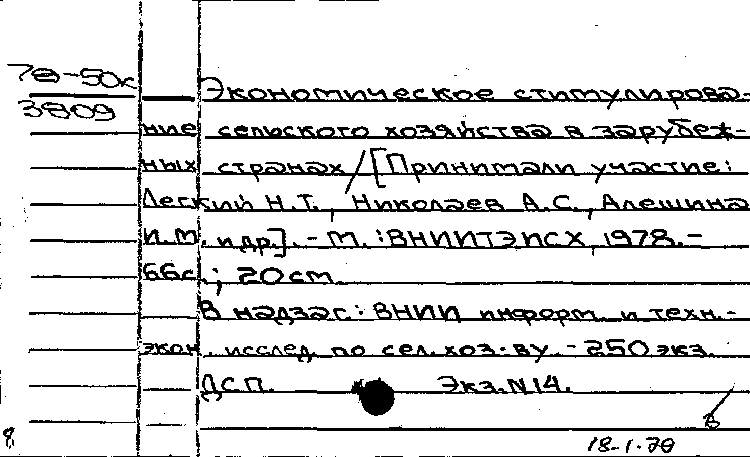 78-50к
3809
Экономическое стимулирова-
ние сельского хозяйства в зарубеж-
ных странах/[Принимали участие:
Легкий Н.Т., Николаев А.С., Алешина
И.М. и др.]. - М. : ВНИИТЭИСХ, 1978. -
66с.; 20 см.
В надзаг.: ВНИИ информ. и техн.-
экон. исслед. по сел. хоз-ву. - 250 экз.
ДСП. Экз. N 14.
В
8
18-1-78